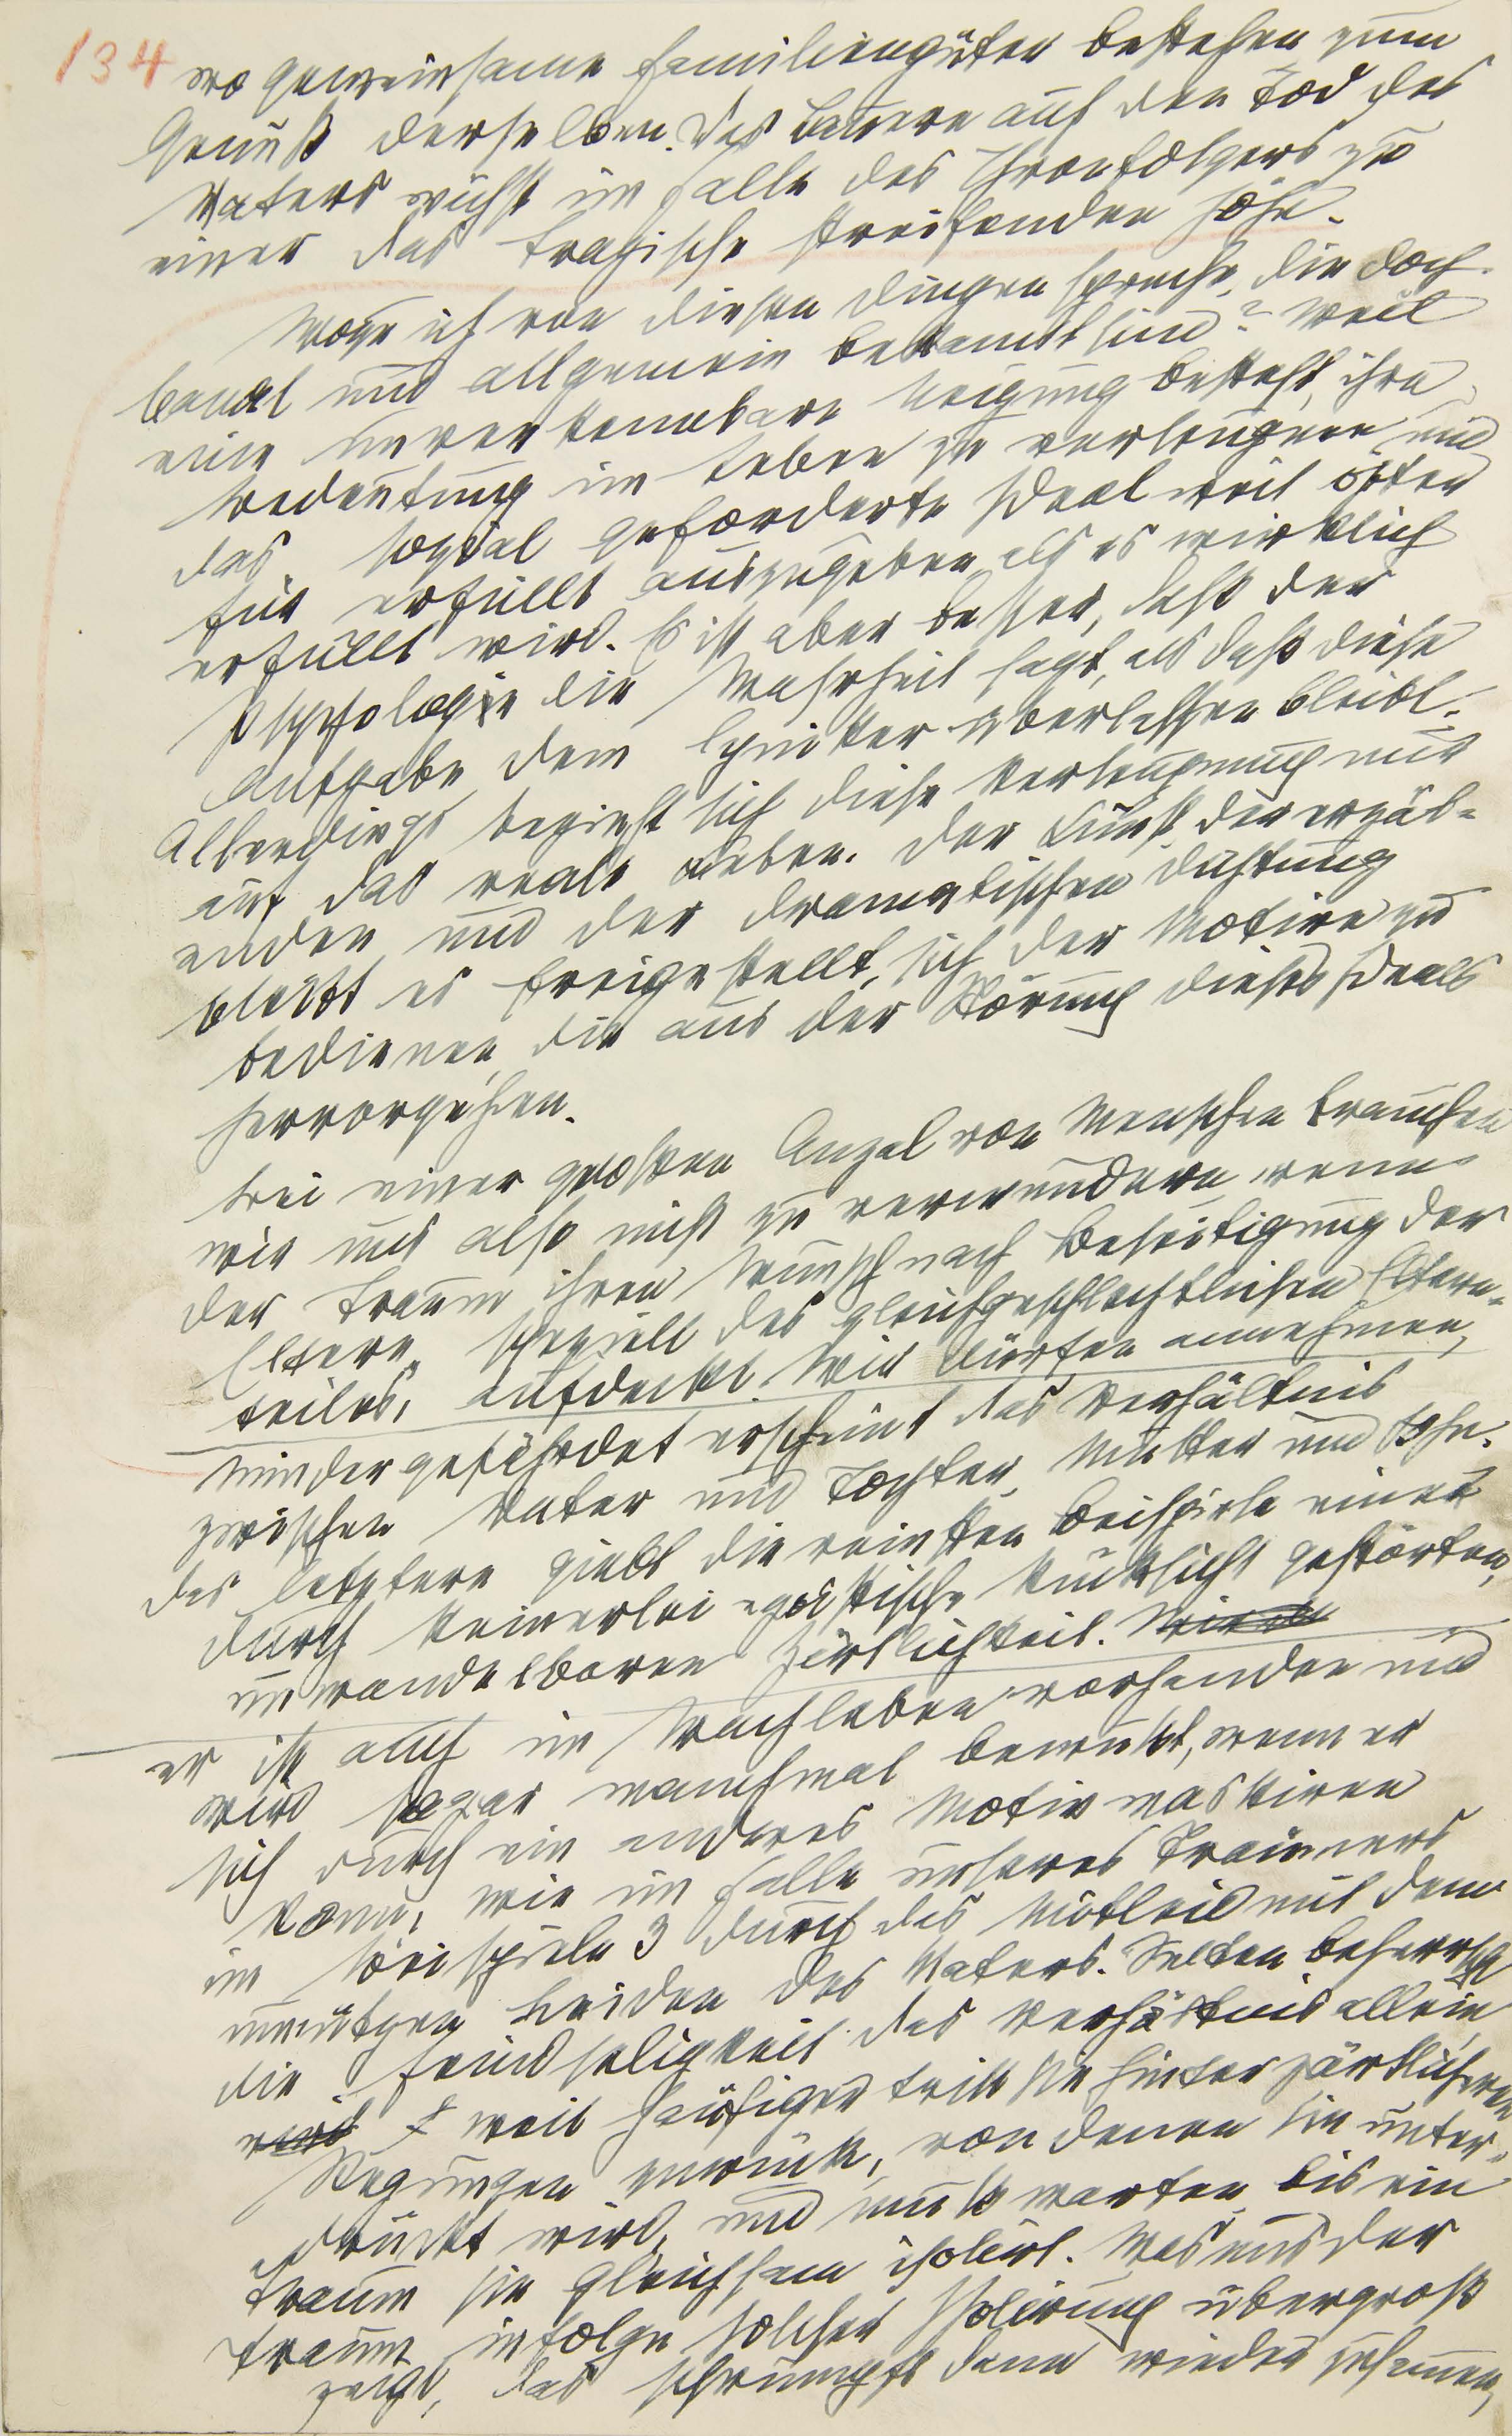 134 wo gemeinsame Familiengüter bestehen zum
Genuß derselben. Das Lauern auf den Tod des
Vaters wächst im Falle des Thronfolgers zu
einer das Tragische streifenden Höhe.
Wozu ich von diesen Dingen spreche, die doch
banal und allgemein bekannt sind? Weil
eine unverkennbare Neigung besteht, ihre
Bedeutung im Leben zu verleugnen und
das sozial geforderte Ideal weit öfter
für erfüllt auszugeben als es wirklich
erfüllt wird. Es ist aber besser, daß der
Psychologie die Wahrheit sagt, als daß diese
Aufgabe dem Zyniker überlassen bleibt.
Allerdings bezieht sich diese Verleugnung nur
auf das reale Leben. Der Kunst der erzäl-
enden und der dramatischen Dichtung
bleibt es freigestellt, sich der Motive zu
bedienen, die aus der Störung dieses Ideals
hervorgehen.
Bei einer großen Anzal von Menschen brauchen
wir uns also nicht zu verwundern, wenn
der Traum ihren Wunsch nach Beseitigung der
Eltern, speziell des gleichgeschlechtlichen Eltern-
teiles, aufdeckt. Wir dürfen annehmen,
Minder gefährdet erscheint das Verhältnis
zwischen Vater und Tochter, Mutter und Sohn.
Das letztere giebt die reinsten Beispiele einer
durch keinerlei egoistische Rücksicht gestörten,
unwandelbaren Zärtlichkeit.
er ist auch im Wachleben vorhanden und
wird sogar manchmal bewußt, wenn er
sich durch ein anderes Motiv maskiren
kann, wie im Falle unseres Träumers
im Beispiele 3 durch das Mitleid mit dem
unnützen Leiden des Vaters. Selten beherrscht
die Feindseligkeit das Verhältnis allein
weit häufiger tritt sie hinter zärtlicheren
Regungen zurück, von denen sie unter-
drückt wird, und muß warten bis ein
Traum sie gleichsam isolirt. Was uns der
Traum infolge solcher Isolirung übergroß
zeigt, das schrumpft dann wieder zusammen,